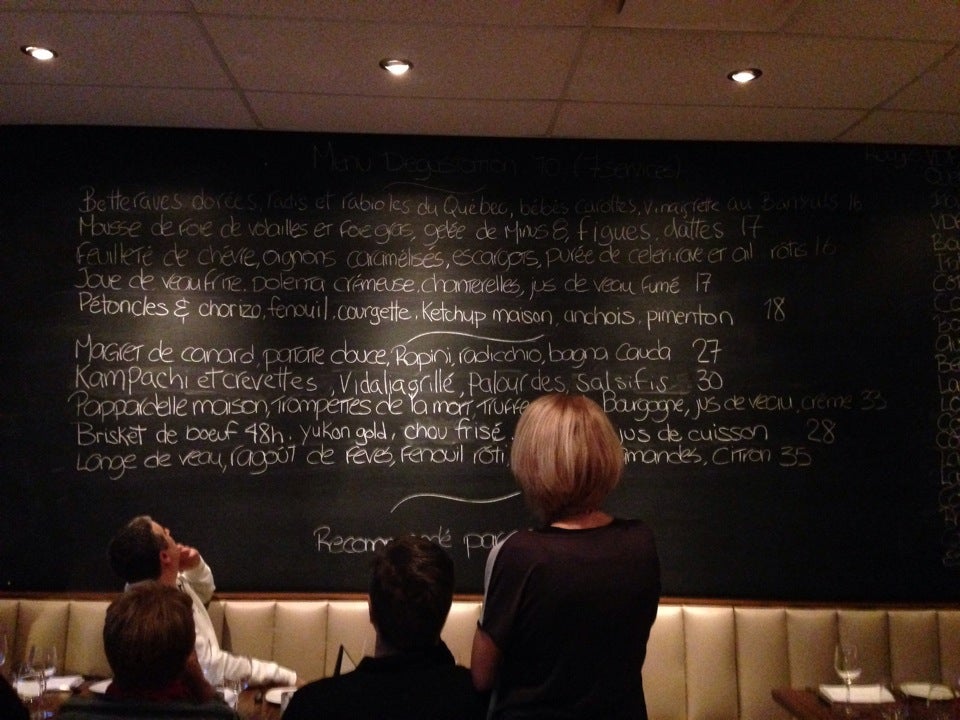 Menu Dégustation 70 (7 services)
Betteraves dorées, radis et rabioles du Québec, bébés carottes, vinaigrette au Banyuls 16
Mousse de foie de volailles et foie gras, gelée de Minus 8, figues, dattes 17
Feuilleté de chèvre, oignons caramélisés, escargots, purée de céleri-rave et ail rôtis 16
Joue de veau frite, polenta crémeuse, chanterelles, jus de veau fumé 17
Pétoncles & chorizo, fenouil, courgette, Ketchup maison, anchois, pimenton 18
Magret de canard, patate douce, Rapini, radicchio, bagna cauda 27
Kampachi et crevettes, Vidalia grillé, palourdes, salsifis 30
Pappardelle maison, Trompettes de la mort, Truffe Bourgogne, jus de veau, crème 33
Brisket de boeuf 48h, yukon gold, chou frisé, jus de cuisson 28
Longe de veau, ragoût de fèves, fenouil rôti, citron 35